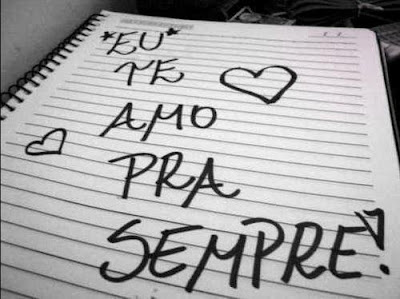 *EU*
TE
AMO
PRA
SEMPRE!